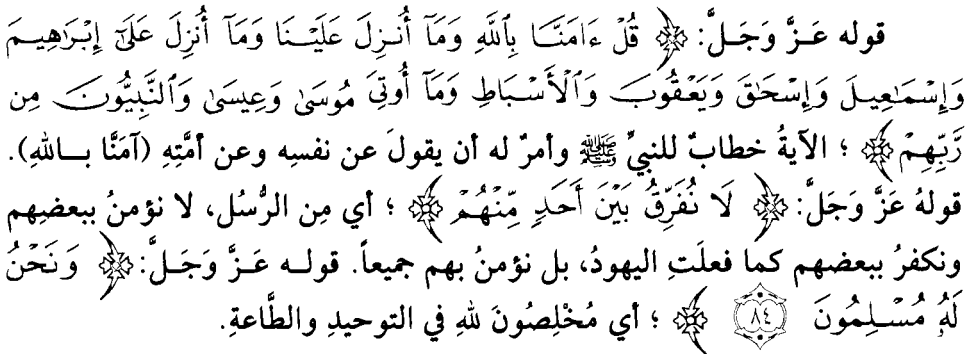 قوله عَـزَّ وَجَـلَّ: ﴿ قُلْ ءَامَنَّـا بِٱللَّهِ وَمَآ أُنـزِلَ عَلَيْـنَا وَمَآ أُنزِلَ عَلَىٰٓ إِبْرَٰهِيـمَ
وَإِسْمَـٰعِيلَ وَإِسْحَـٰقَ وَيَعْقُوبَ وَٱلْأَسْبَاطِ وَمَآ أُوتِىَ مُوسَىٰ وَعِيسَىٰ وَٱلنَّبِيُّونَ مِن
رَّبِّهِمْ ﴾ ؛ الآيةُ خطابٌ للنبيِّ ﷺ وأمرٌ له أن يقولَ عن نفسِه وعن أمَّتِهِ (آمَنَّا بـاللهِ).
قولهُ عَزَّ وَجَلَّ: ﴿ لَا نُفَرِّقُ بَيْنَ أَحَدٍ مِّنْهُمْ ﴾ ؛ أي مِن الرُّسُل، لا نؤمنُ ببعضِهم
ونكفرُ ببعضهم كما فعلَتِ اليهودُ، بل نؤمنُ بهم جميعاً. قولـه عَـزَّ وَجَـلَّ: ﴿ وَنَحْنُ
لَهُۥ مُسْـلِمُونَ ٨٤ ﴾ ؛ أي مُخْلِصُونَ للهِ في التوحيدِ والطَّاعةِ.